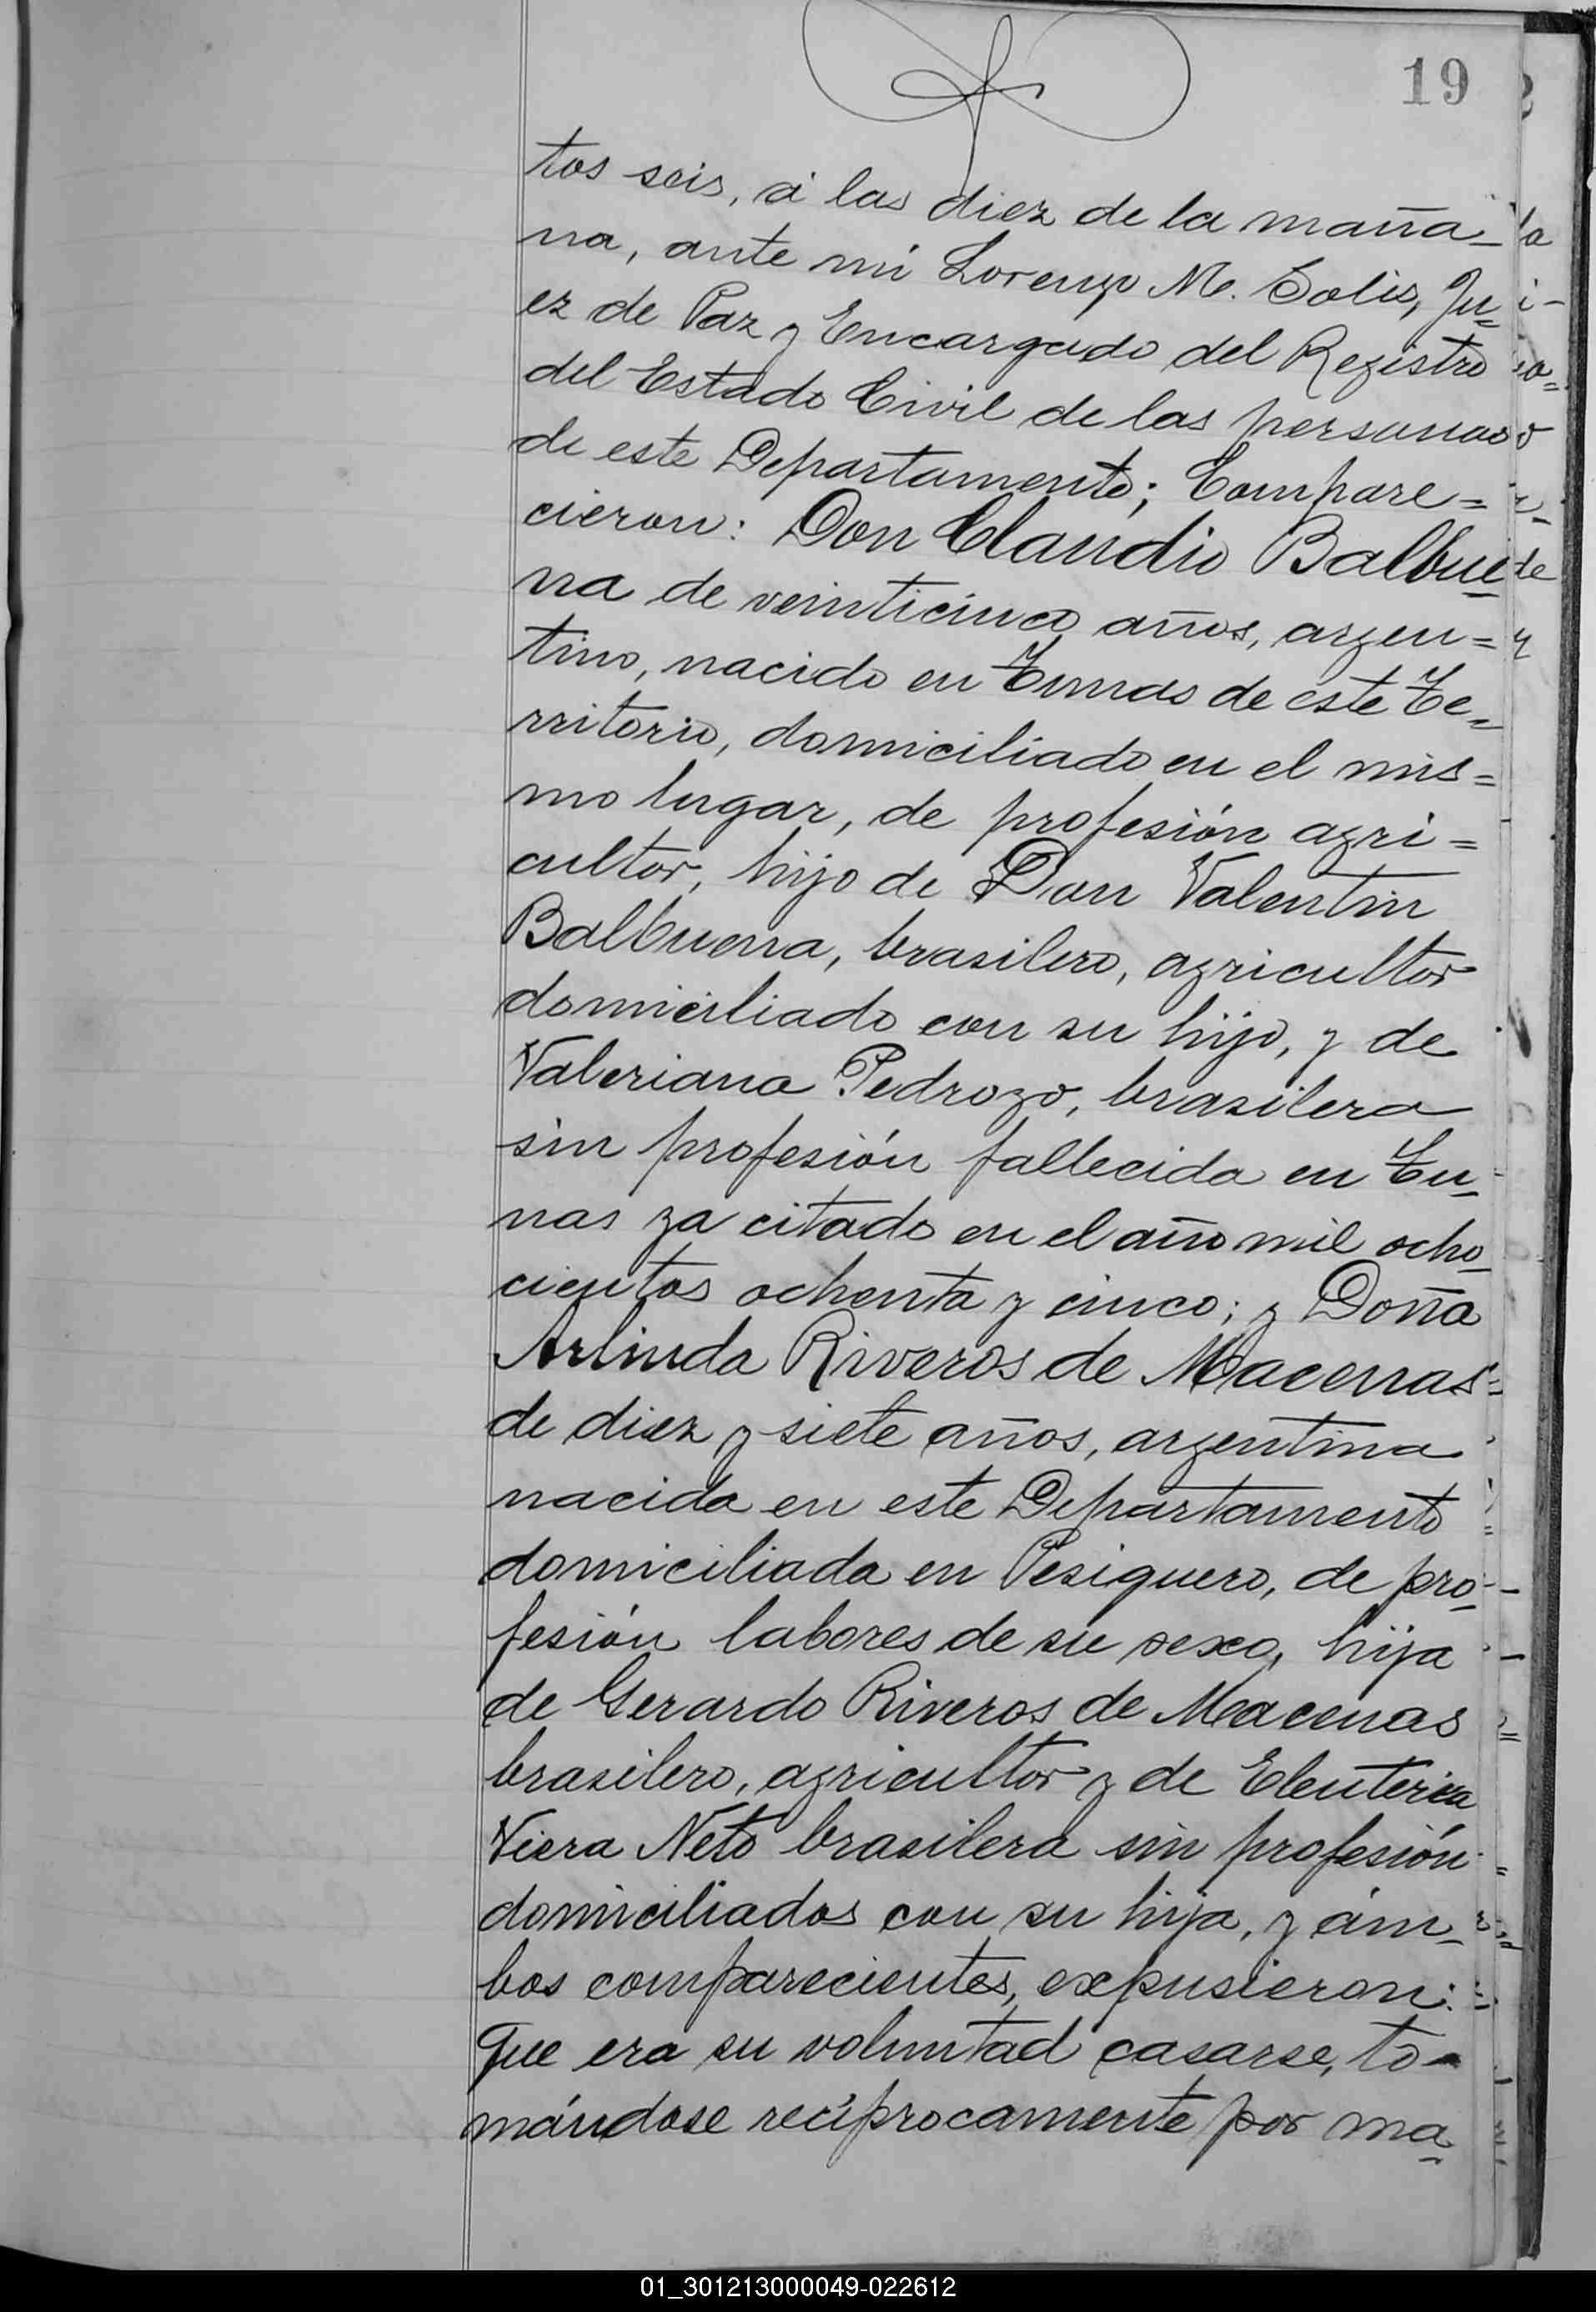 19
tos seis, á las diez de la maña-
na, ante mí Lorenzo M. Solis, Ju=
ez de Paz y Encargado del Registro
del Estado Civil de las personas
de este Departamento; Compare=
cieron: Don Claudio Balbue
na de veinticinco años, argen=
tino, nacido en Tunas de este Te=
rritorio, domiciliado en el mis=
mo lugar, de profesión agri=
cultor, hijo de Don Valentin
Balbuena, brasilero, agricultor
domiciliado con su hijo, y de
Valeriana Pedrozo, brasilera
sin profesión fallecida en Tu-
nas ya citado en el año mil ocho-
cientos ochenta y cinco; y Doña
Arlinda Riveros de Macenas
de diez y siete años, argentina
nacida en este Departamento
domiciliada en Pesiguero, de pro-
fesión labores de su sexo, hija
de Gerardo Riveros de Macenas
brasilero, agricultor y de Eleuteria
Viera Neto brasilera sin profesión
domiciliados con su hija, y ám-
bos comparecientes, expusieron:
Que era su voluntad casarse, to-
mándose recíprocamente por ma-
01_301213000049-022612